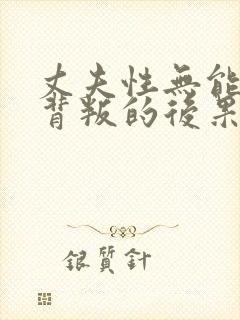 丈夫性無能
背叛的後果
銀質針